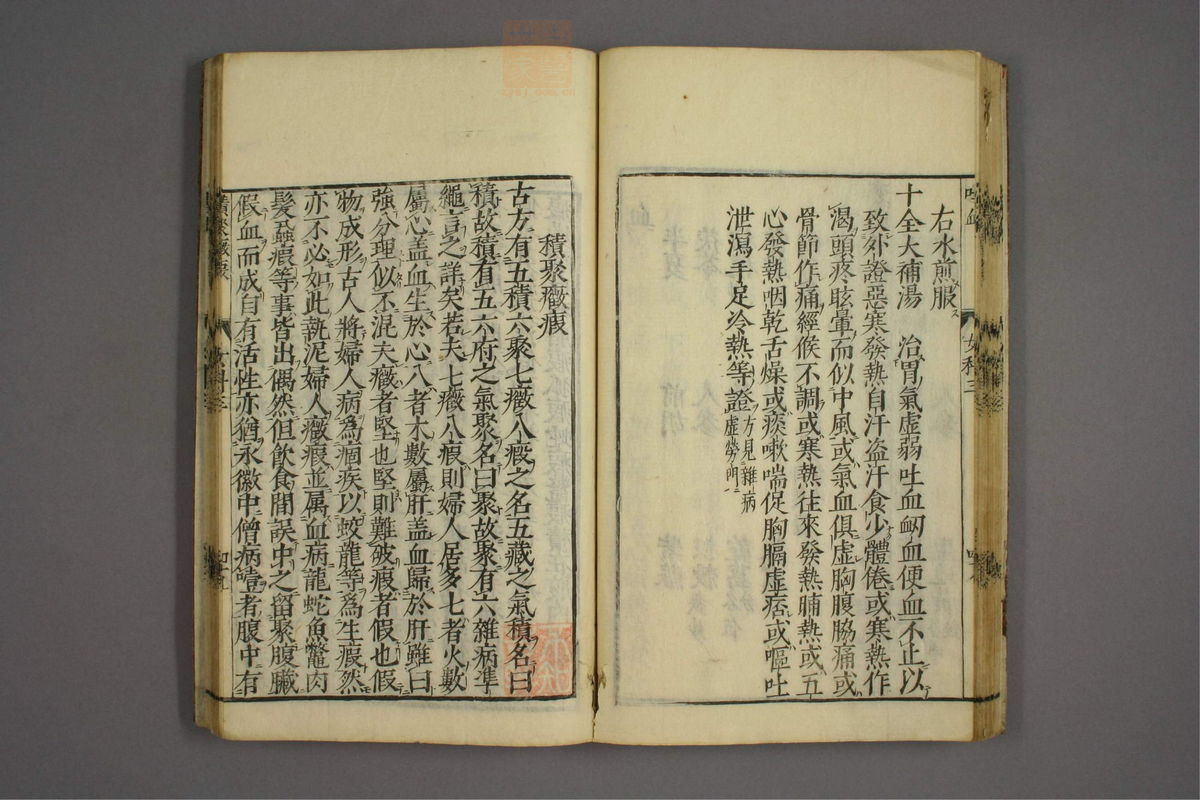 右水煎服
十全大補湯　治胃氣虛弱吐血衂血便血不止以
致外證惡寒發熱自汗盗汗食少體倦或寒熱作
渴頭疼眩暈而似中風或氣血俱虛胸腹脇痛或
骨節作痛經候不調或寒熱往來發熱脯熱或五
心發熱咽乾舌燥或痰嗽喘促胸膈虛痞或嘔吐
泄瀉手足冷熱等證方見雜病虛勞門
女科三
積聚癥瘕
古方有五積六聚七癥八瘕之名五藏之氣積名曰
積故積有五六府之氣聚名曰聚故聚有六雜病準
繩言之詳矣若夫七癥八瘕則婦人居多七者火數
屬心盖血生於心八者木數屬肝盖血歸於肝雖曰
強分理似不混夫癥者堅也堅則難破瘕者假也假
物成形古人將婦人病為痼疾以蛟龍等為生瘕然
亦不必如此執泥婦人癥瘕並属血病龍蛇魚鼈肉
髮蝨瘕等事皆出偶然但飲食間誤中之留聚腹臟
假血而成自有活性亦猶永徽中僧病噎者腹中有